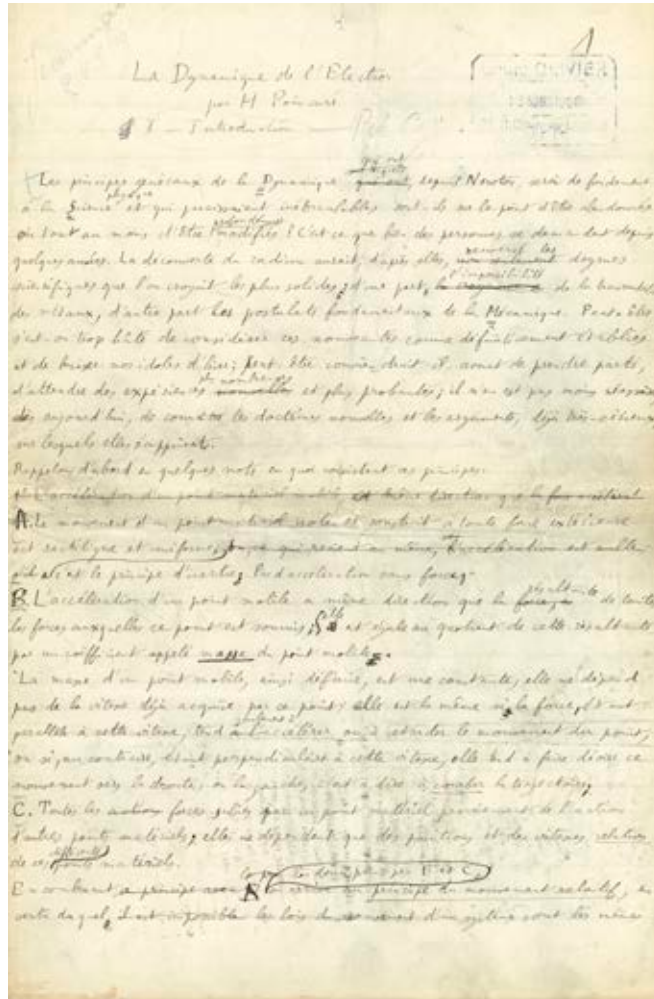 1
La Dynamique de l'Electron
par H Poincaré
I — Introduction
Les principes généraux de la Dynamique qui ont depuis Newton, servi de fondement
à la Science physique et qui paraissaient inébranlables sont-ils sur le point d'être abandonnés
ou tout au moins d'être profondément modifiés ? C'est ce que bien des personnes se demandent depuis
quelques années. La découverte du radium aurait, d'après elles, renversé les dogmes
scientifiques que l'on croyait les plus solides; d'une part, l'impossibilité de la transmutation
des métaux, d'autre part les postulats fondamentaux de la Mécanique. Peut-être
s'est-on trop hâté de considérer ces nouveautés comme définitivement établies
et de briser nos idoles d'hier; peut-être conviendrait-il, avant de prendre parti,
d'attendre des expériences plus nombreuses et plus probantes; il n'en est pas moins nécessaire
dès aujourd'hui, de connaître les doctrines nouvelles et les arguments, déjà très sérieux
sur lesquels elles s'appuient.
Rappelons d'abord en quelques mots en quoi consistent ces principes:
A. Le mouvement d'un point matériel isolé et soustrait à toute force extérieure
est rectiligne et uniforme; c'est le principe d'inertie; pas d'accélération sans force;
B. L'accélération d'un point mobile a même direction que la résultante de toutes
les forces auxquelles ce point est soumis; et égale au quotient de cette résultante
par un coefficient appelé masse du point mobile.
La masse d'un point mobile, ainsi définie, est une constante, elle ne dépend
pas de la vitesse déjà acquise par ce point; elle est la même si la force, étant
parallèle à cette vitesse, tend à accélérer ou à retarder le mouvement du point,
ou si, au contraire, étant perpendiculaire à cette vitesse, elle tend à faire dévier ce
mouvement vers la droite, ou la gauche, c'est à dire à courber la trajectoire;
C. Toutes les forces subies par un point matériel proviennent de l'action
d'autres points matériels; elles ne dépendent que des positions et des vitesses relatives
de ces différents points matériels.
En combinant les deux principes B et C, principe du mouvement relatif, en
vertu duquel, les lois du mouvement d'un système sont les mêmes